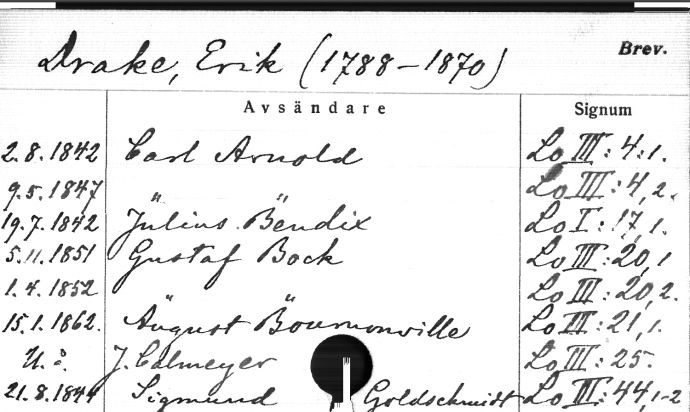 Drake, Erik (1788-1870) Brev.
Avsändare Signum
2.8.1842 Carl Arnold Lo III:4:1.
9.5.1847 " " Lo III:4,2.
19.7.1842 Julius Bendix Lo I:17,1.
5.11.1851 Gustaf Bock Lo III:20,1
1.4.1852 " " Lo III:20,2.
15.1.1862. August Bournonville Lo III:21,1.
U.å. J. Calmeyer Lo III:25.
21.8.1844 Sigmund Goldschmidt Lo III:44,1-2